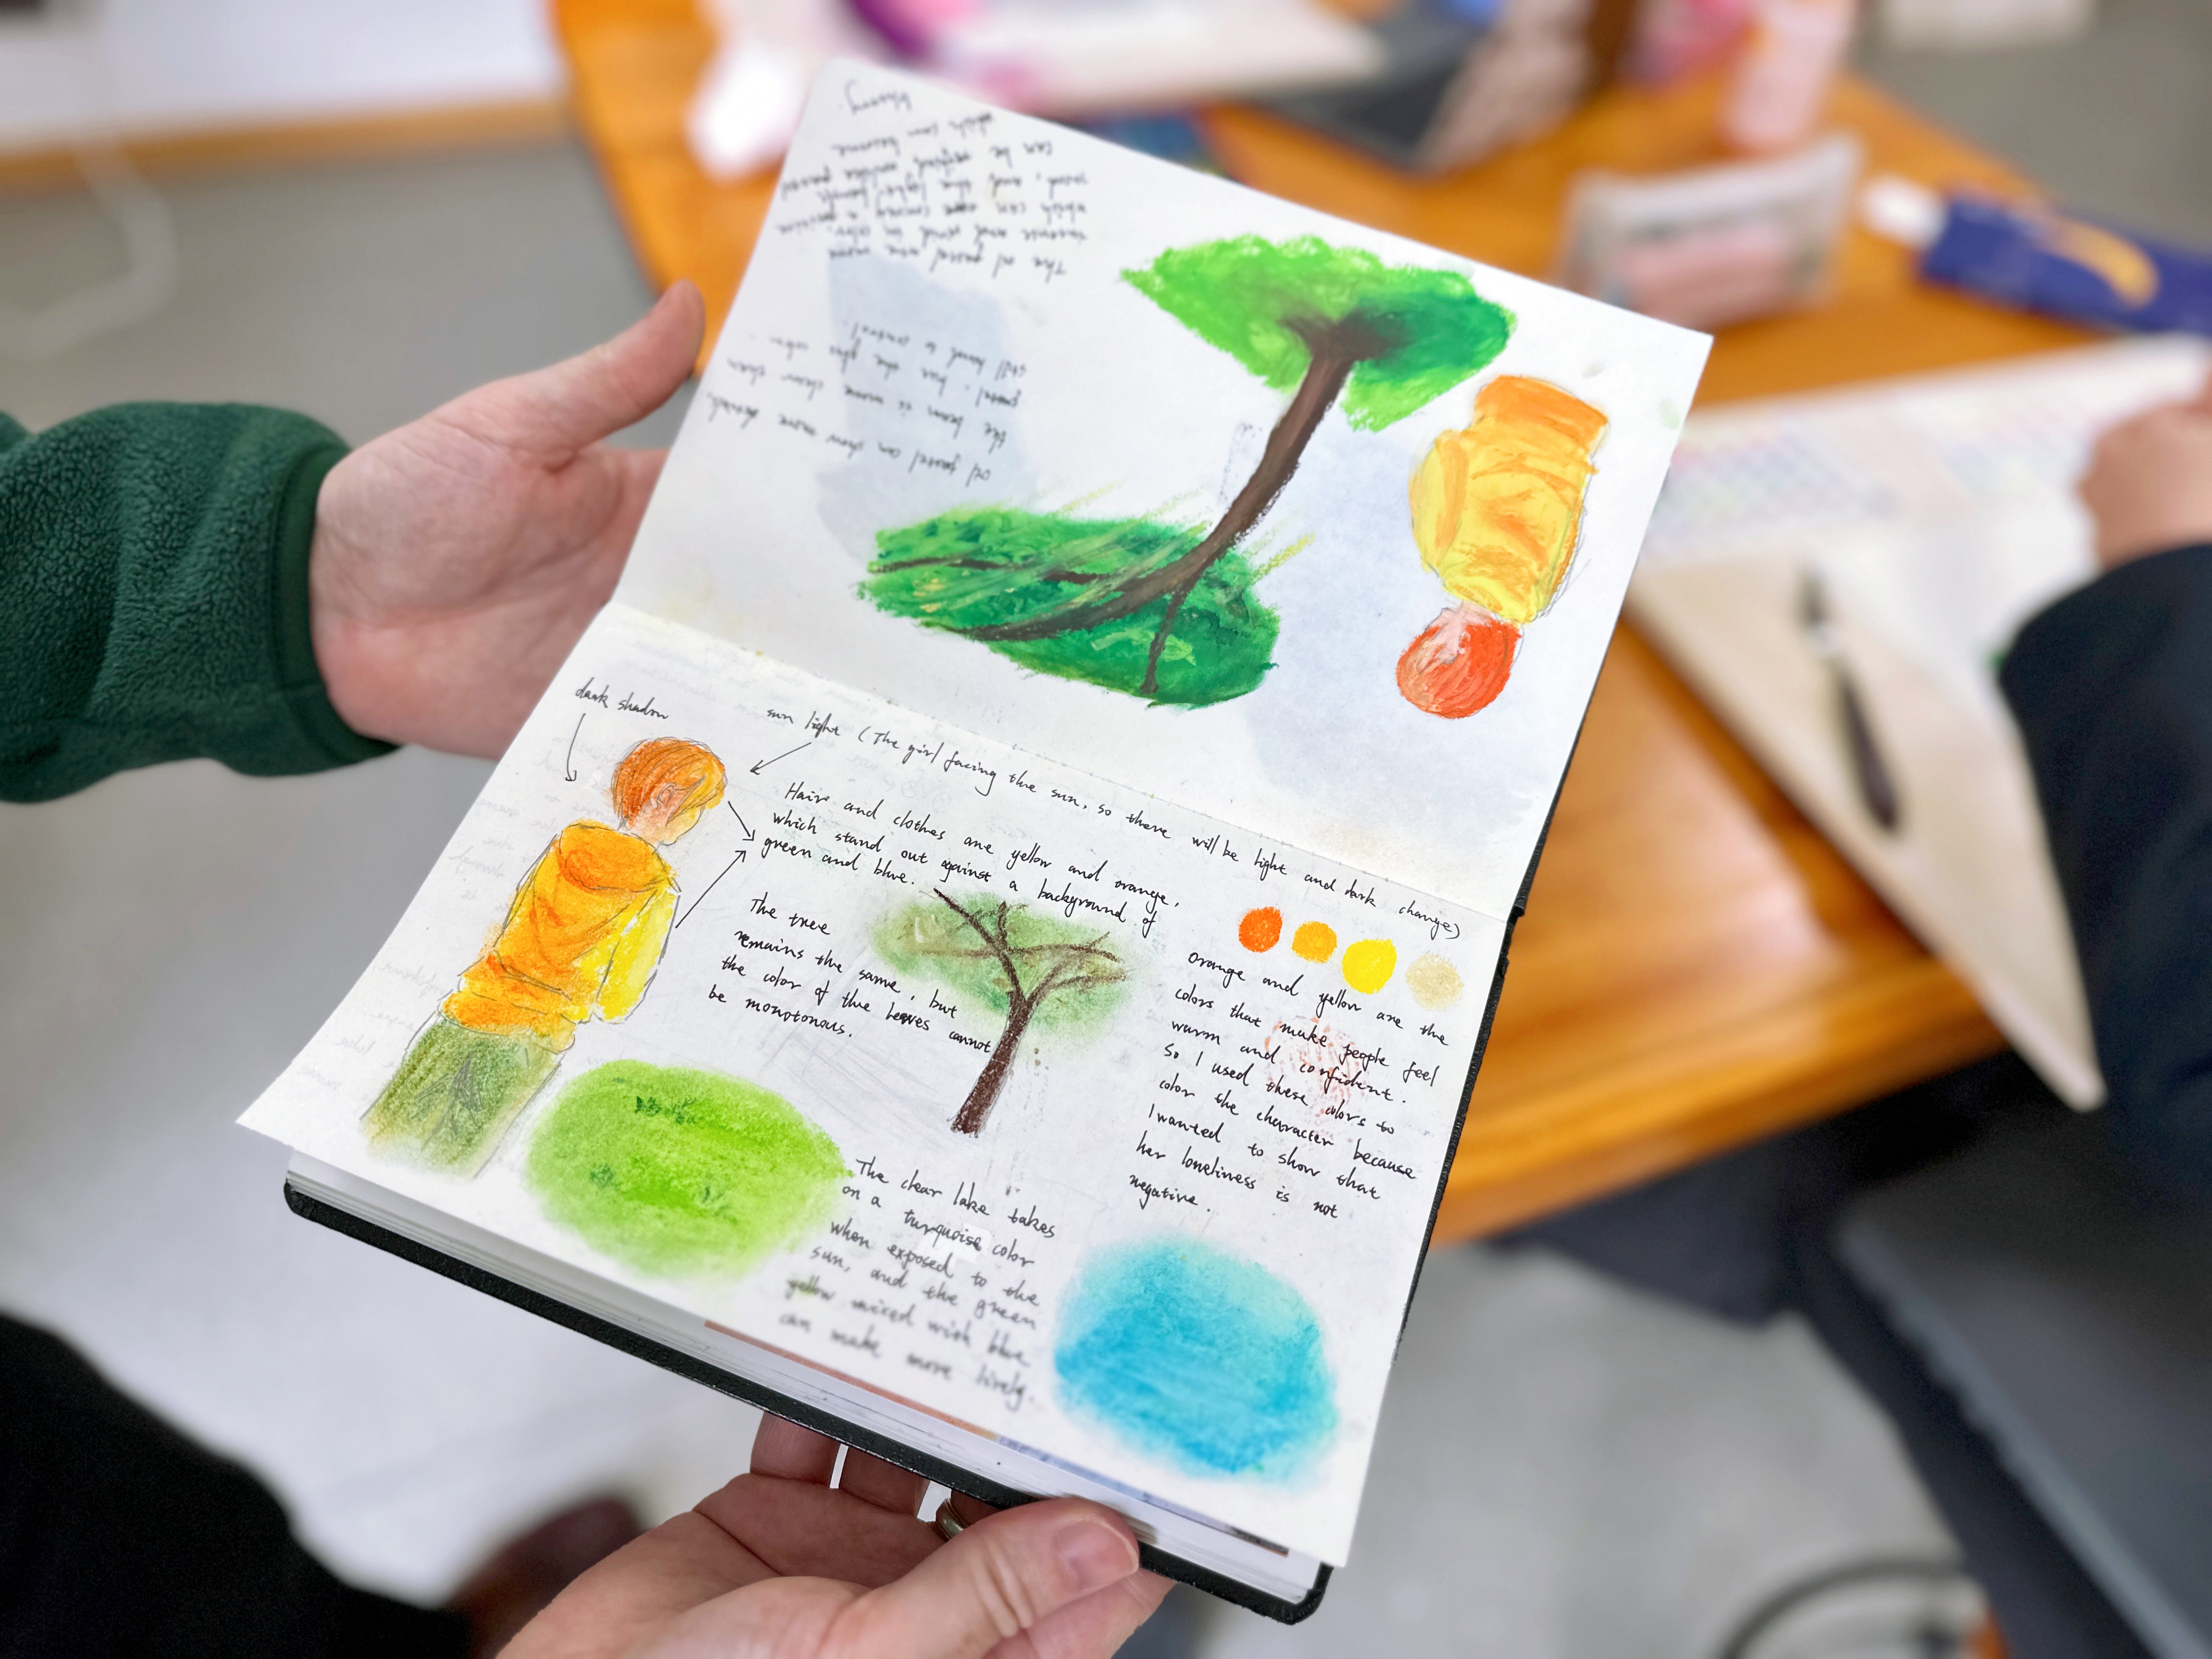 dark shadow
sun light (The girl facing the sun, so there will be light and dark changes)
Hair and clothes are yellow and orange,
which stand out against a background of
green and blue.
The tree
remains the same, but
the color of the leaves cannot
be monotonous.
orange and yellow are the
colors that make people feel
warm and confident.
So I used these colors to
color the character because
I wanted to show that
her loneliness is not
negative.
The clear lake takes
on a turquoise color
when exposed to the
sun, and the green
yellow mixed with blue
can make more lively.
oil pastel can show more details.
the is more clean than
pastel, but the color
still hard to control
The oil pastel are more
intense and vivid in color,
which can convey a
and the light
can be
which can become
blurry.